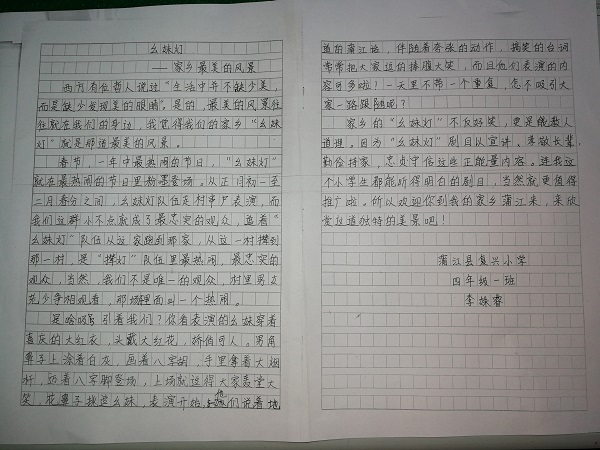 幺妹灯
——家乡最美的风景
西方有位哲人说过"生活中并不缺少美,
而是缺少发现美的眼睛"。是的,最美的风景往
往就在我们的身边,我觉得我们的家乡"幺妹
灯"就是那道最美的风景。
春节,一年中最热闹的节日,"幺妹灯"
就在最热闹的节日里粉墨登场。从正月初一至
二月春分之间,幺妹灯队伍走村串户表演,而
我们这群小不点就成了最忠实的观众,追着"
幺妹灯"队伍从这家跑到那家,从这一村撵到
那一村,是"撵灯"队伍里最热闹、最忠实的
观众,当然,我们不是唯一的观众,村里男女
老少争相观看,那场面叫一个热闹。
是啥吸引着我们?你看表演的幺妹穿着
喜庆的大红衣,头戴大红花,娇俏可人。男角
鼻子上涂着白灰,画着八字胡,手里拿着大烟
杆,迈着八字脚登场,上场就逗得大家轰堂大
笑,花鼻子挑逗幺妹,表演开始,他们说着地
道的蒲江话,伴随着夸张的动作,搞笑的台词
常常把大家逗的捧腹大笑,而且他们表演的内
容可多啦!一天里不带一个重复,怎不吸引大
家一路跟随呢?
家乡的"幺妹灯"不仅好笑,更是能教人
道理。因为"幺妹灯"剧目以宣讲、孝敬长辈、
勤俭持家、忠贞守信这些正能量内容。连我这
个小学生都能听得明白的剧目,当然就更值得
推广啦。所以欢迎你到我的家乡蒲江来,来欣
赏这道独特的美景吧!
蒲江县复兴小学
四年级一班
李姝睿